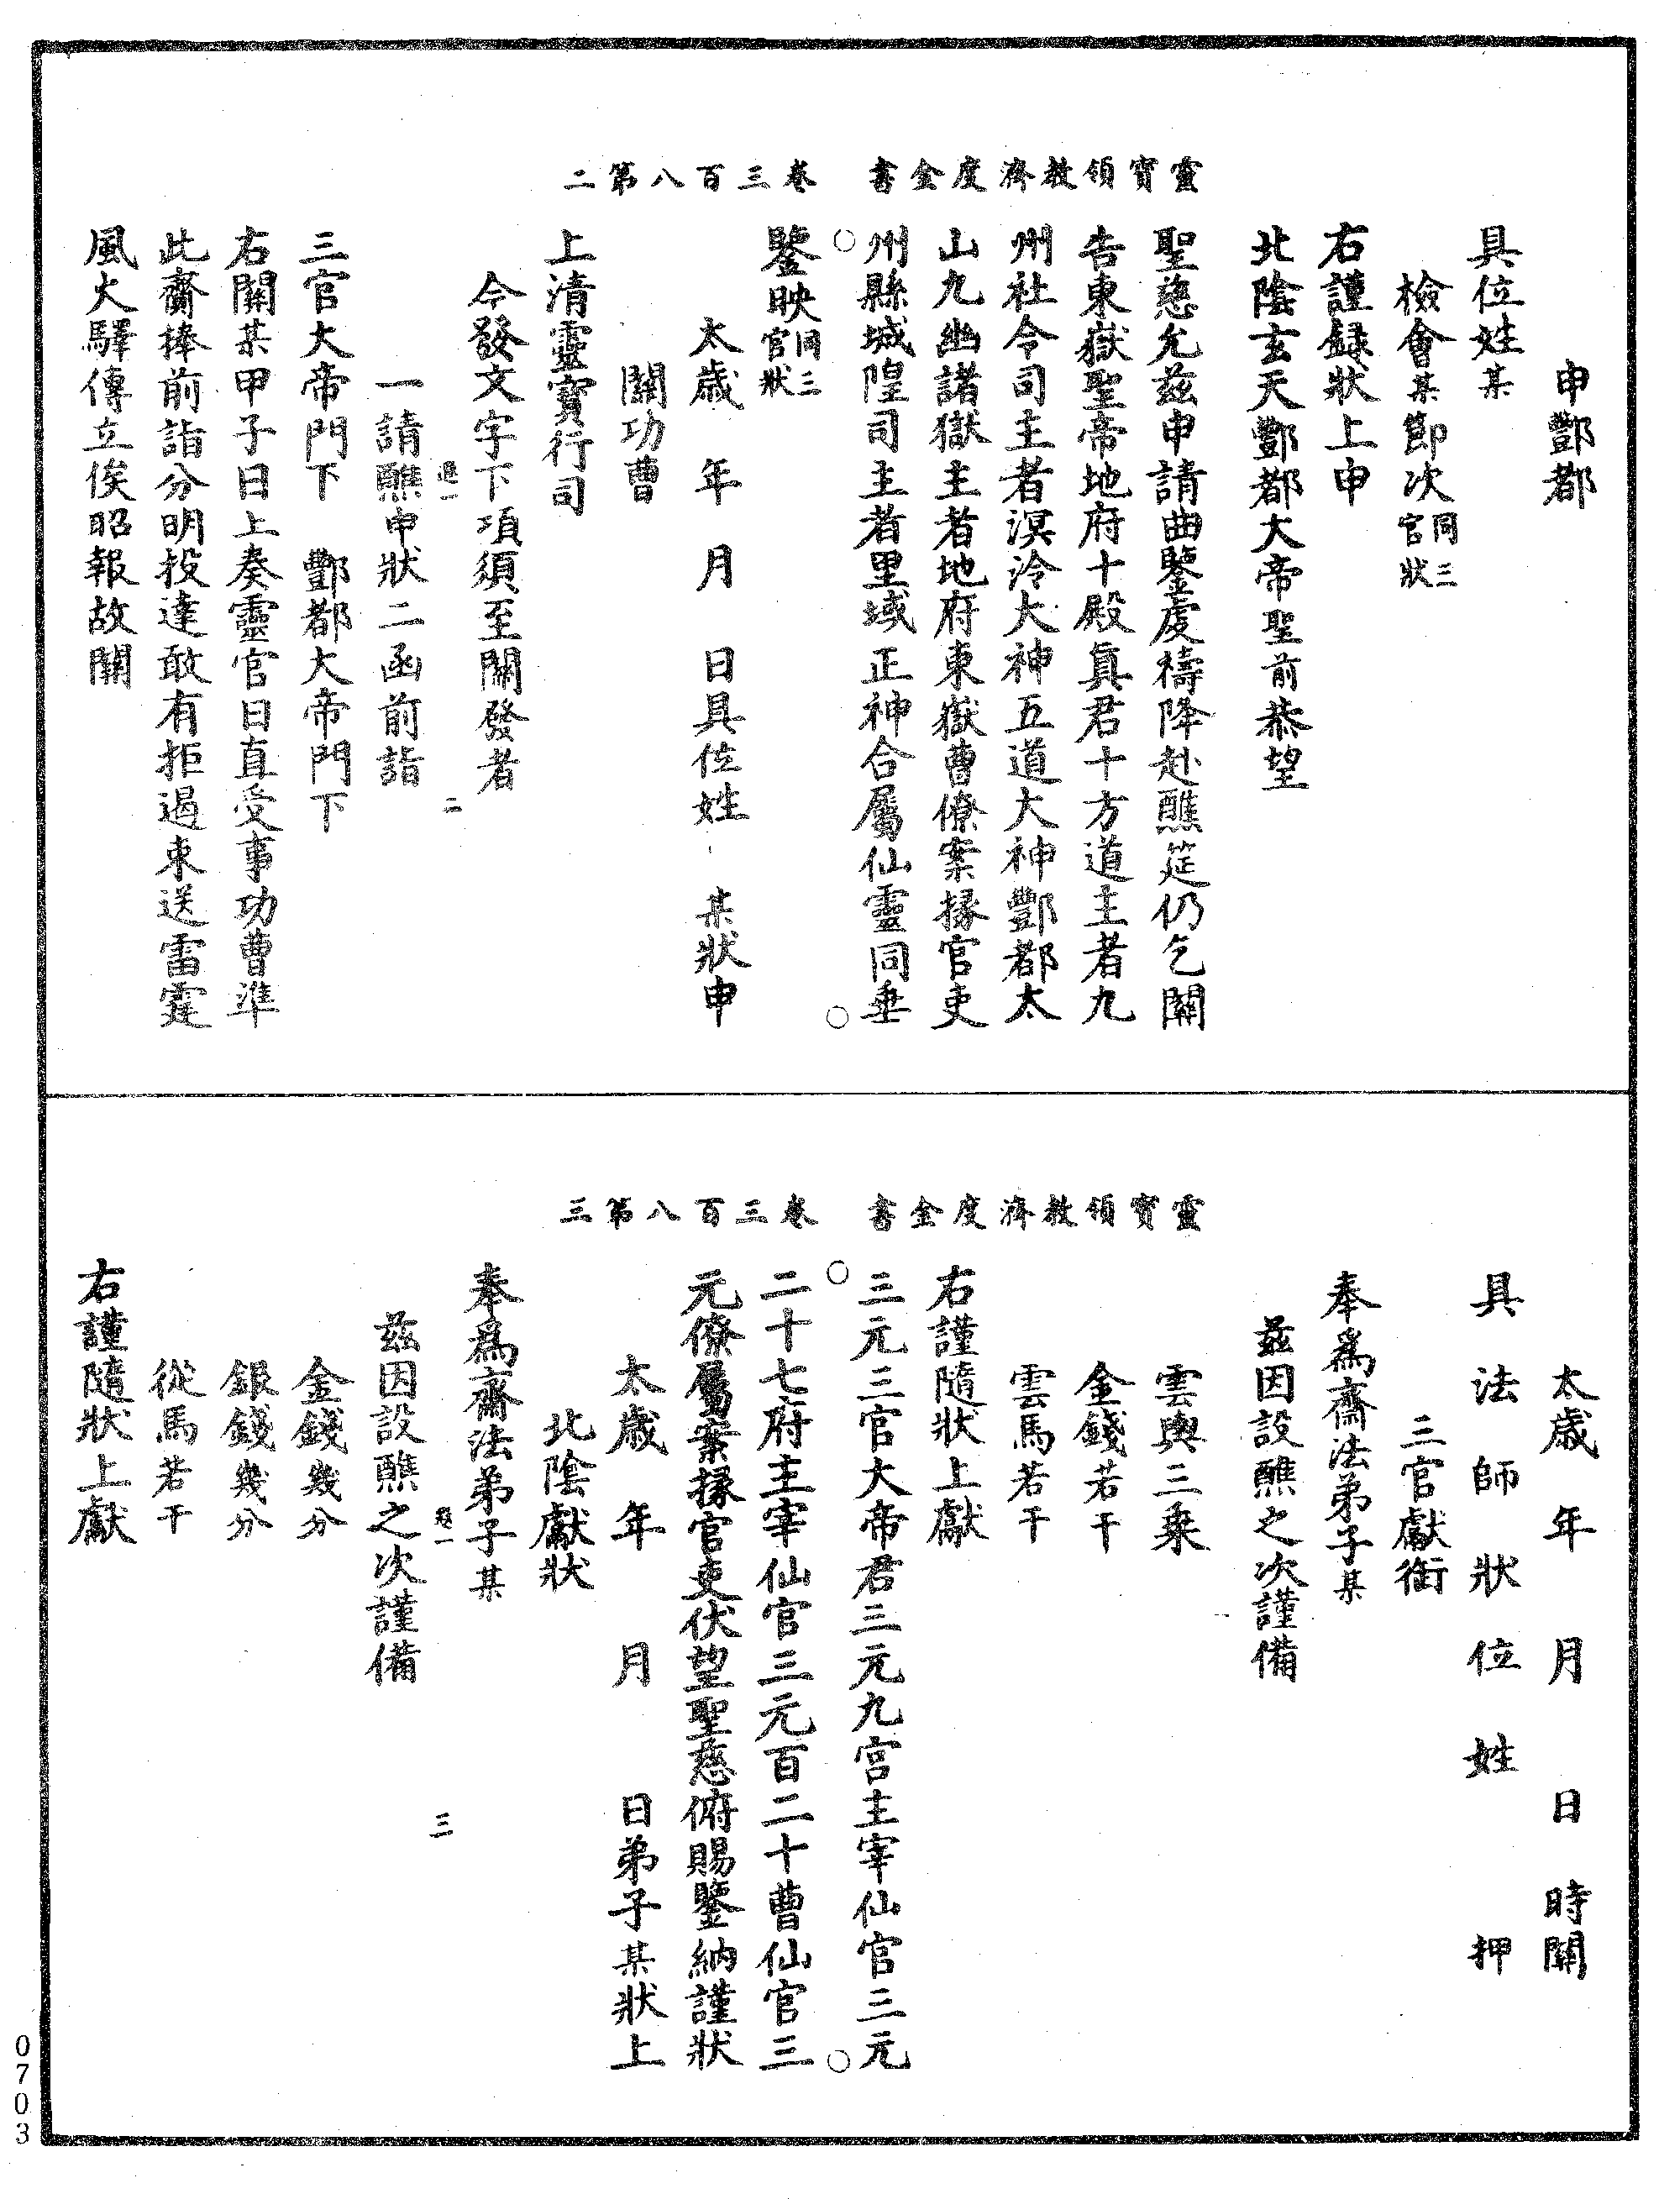 靈寶領教濟度金書　卷三百八第二
申酆都
具位姓某
檢會某節次同三官狀
右謹録狀上申
北陰玄天酆都大帝聖前恭望
聖慈允茲申請曲鑒虔禱降赴醮筵仍乞關
告東嶽聖帝地府十殿眞君十方道主者九
州社令司主者溟泠大神五道大神酆都太
山九幽諸獄主者地府東嶽曹僚案掾官吏
州縣城隍司主者里域正神合屬仙靈同垂
鑒映同三官狀
太歲　年　月　日具位姓　某狀申
關功曹
上清靈寶行司
今發文字下項須至關發者
一請醮申狀二函前詣
三官大帝門下　酆都大帝門下
右關某甲子日上奏靈官日直受事功曹準
此齎捧前詣分明投達敢有拒遏束送雷霆
風火驛傳立俟昭報故關
二
靈寶領教濟度金書　卷三百八第三
太歲　年　月　日　時關
具法師狀位姓　押
三官獻銜
奉爲齋法弟子某
茲因設醮之次謹備
雲輿三乘
金錢若干
雲馬若干
右謹隨狀上獻
三元三官大帝君三元九宮主宰仙官三元
二十七府主宰仙官三元百二十曹仙官三
元僚屬案掾官吏伏望聖慈俯賜鑒納謹狀
太歲　年　月　日弟子某狀上
北陰獻狀
奉爲齋法弟子某
茲因設醮之次謹備
金錢幾分
銀錢幾分
從馬若干
右謹隨狀上獻
三
0703